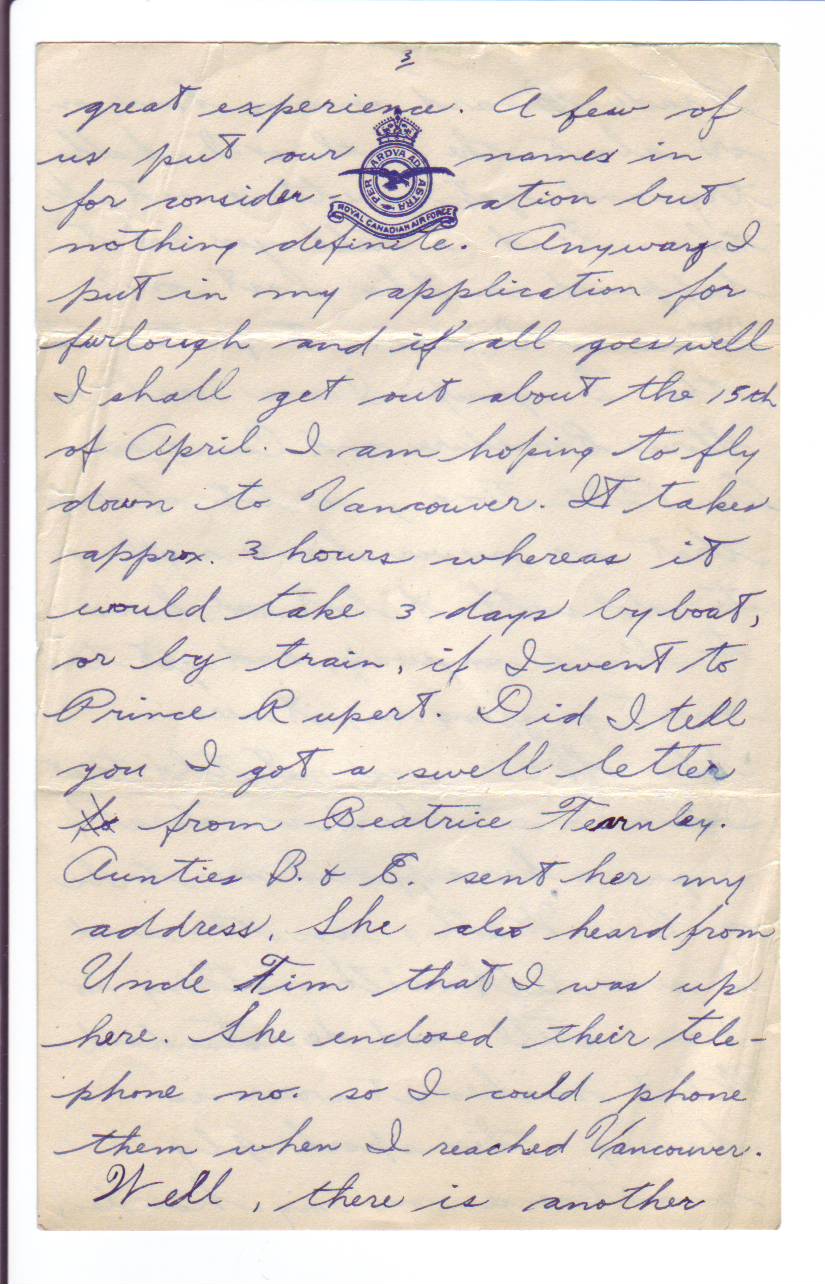 3
great experience. A few of
PER ARDVA AD ASTRA
ROYAL CANADIAN AIR FORCE
us put our names in
for consider- ation but
nothing definite. Anyway I
put in my application for
furlough and if all goes well
I shall get out about the 15th
of April. I am hoping to fly
down to Vancouver. It takes
approx. 3 hours whereas it
would take 3 days by boat,
or by train, if I went to
Prince Rupert. Did I tell
you I got a swell letter
from Beatrice Fearnley.
Aunties B. & E. sent her my
address. She also heard from
Uncle Tim that I was up
here. She enclosed their tele-
phone no. so I could phone
them when I reached Vancouver.
Well, there is another